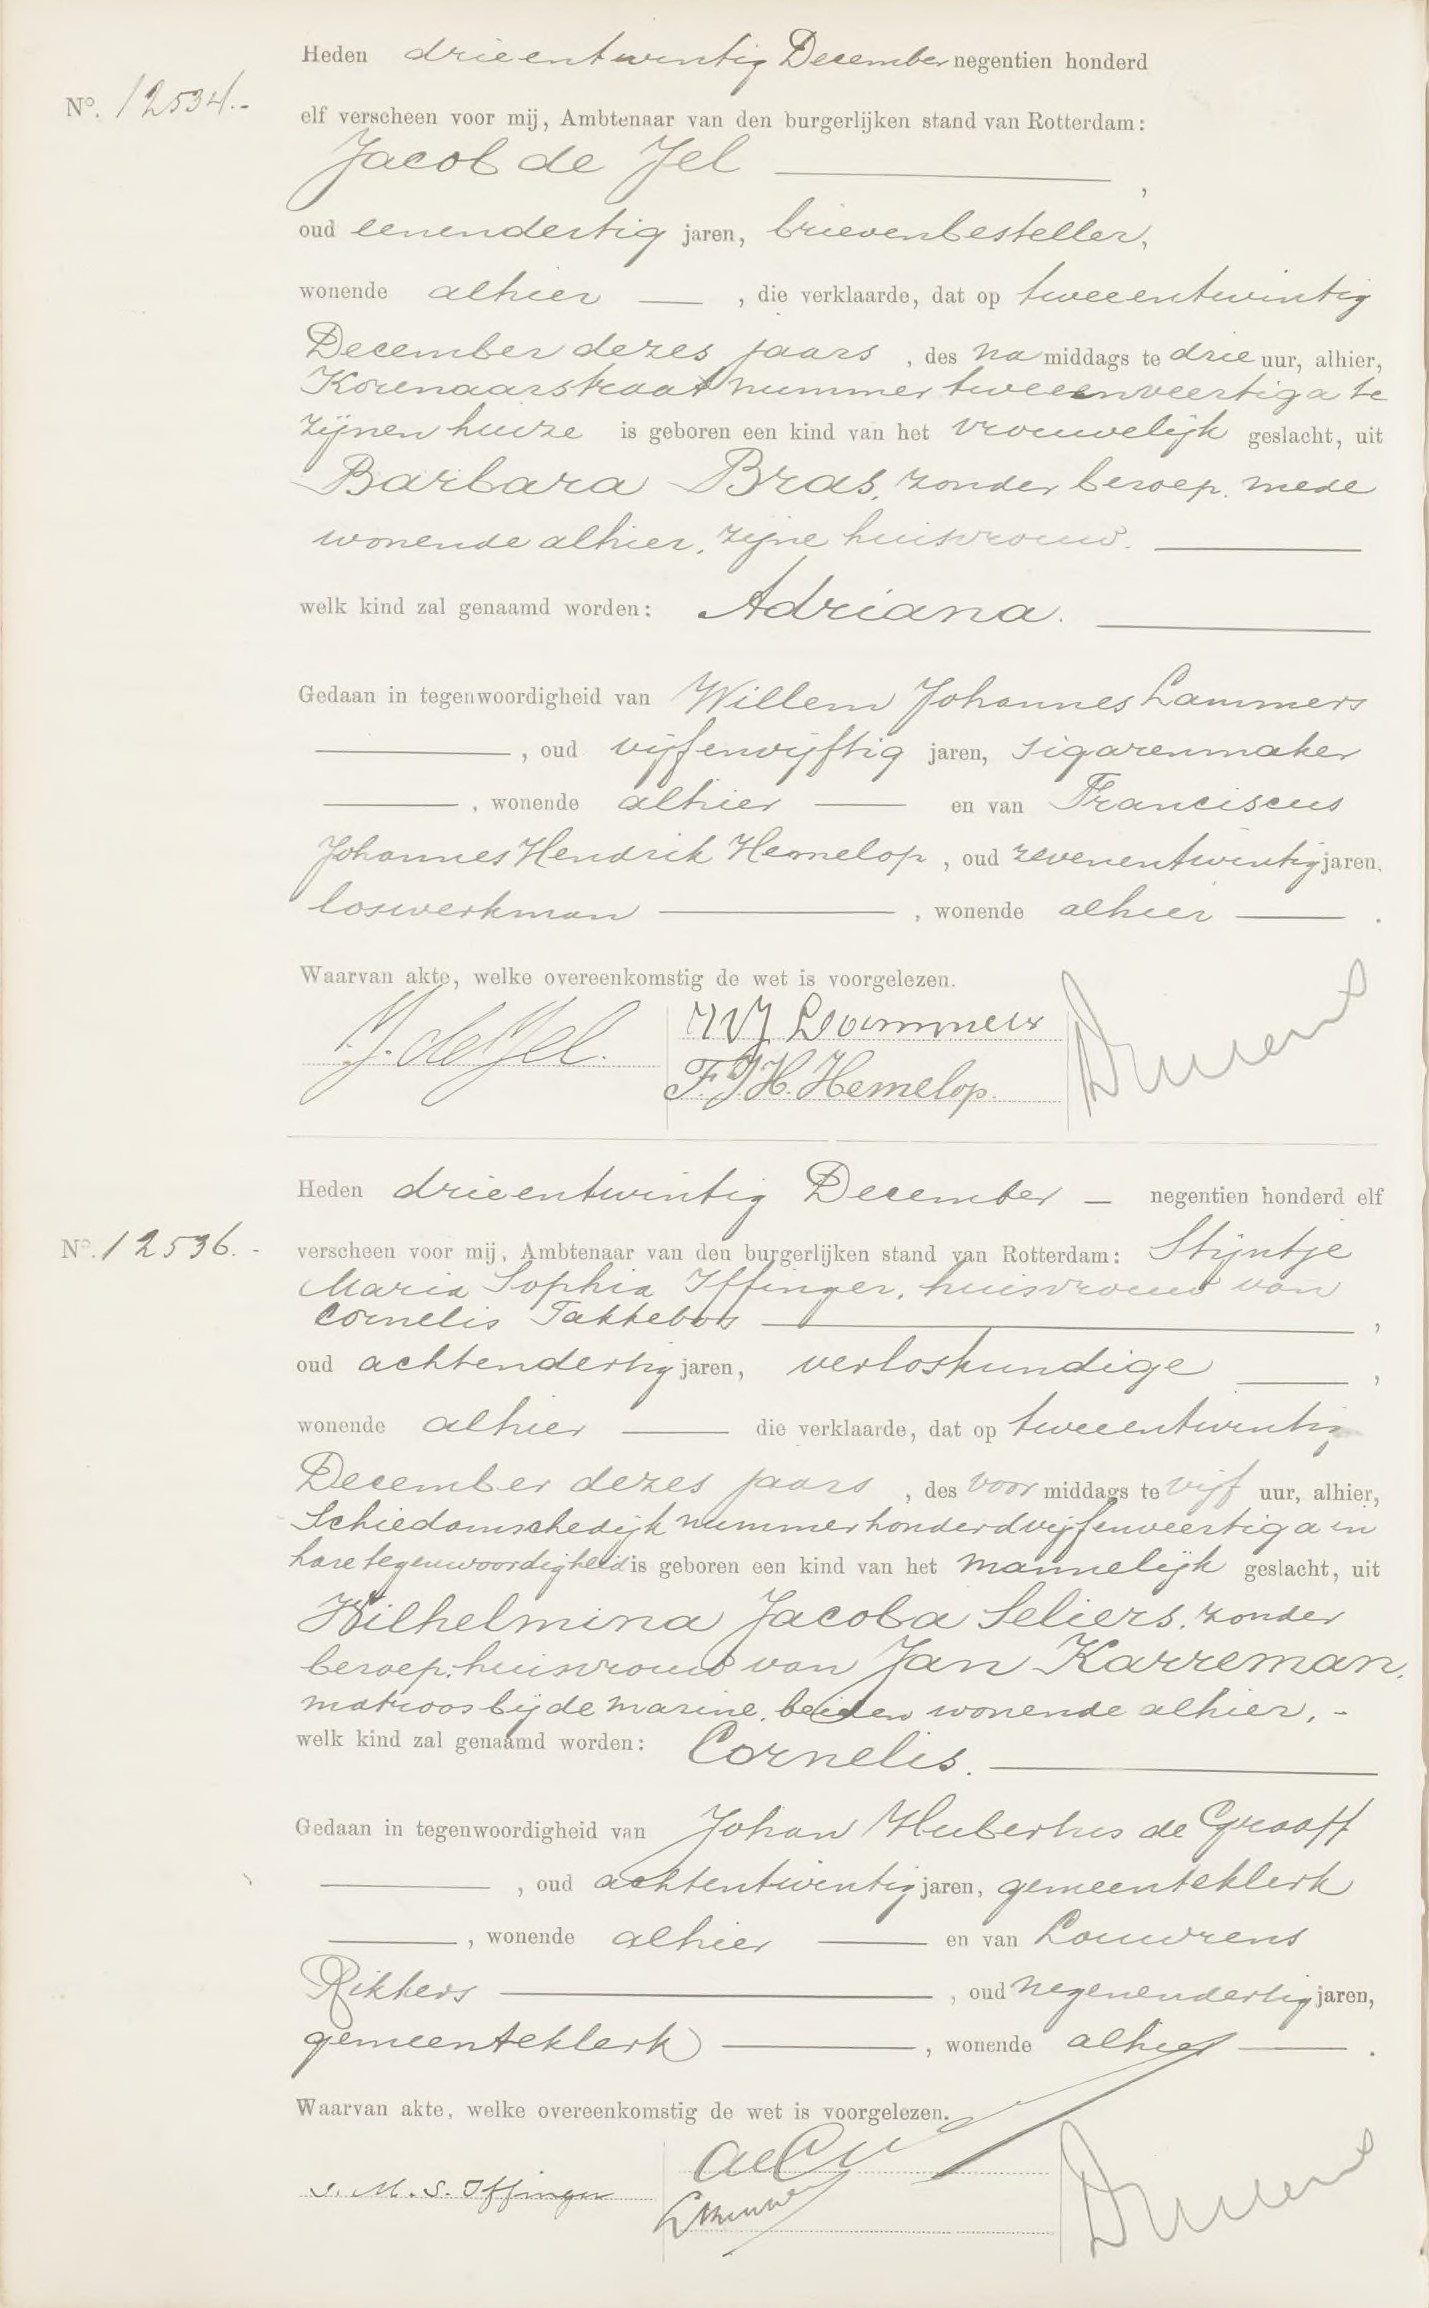 Heden drieentwintig December negentien honderd
No. 12534.-
elf verscheen voor mij, Ambtenaar van den burgerlijken stand van Rotterdam:
Jacob de Jel ,
oud eenendertig jaren, brievenbesteller,
wonende alhier , die verklaarde, dat op tweeentwintig
December dezes jaars , des na middags te drie uur, alhier,
Korenaarstraat nummer tweeenveertig a te
zijnen huize is geboren een kind van het vrouwelijk geslacht, uit
Barbara Bras, zonder beroep, mede
wonende alhier, zijne huisvrouw.
welk kind zal genaamd worden: Adriana.
Gedaan in tegenwoordigheid van Willem Johannes Lammers
, oud vijfenvijftig jaren, sigarenmaker
, wonende alhier en van Franciscus
Johannes Hendrik Hemelop , oud zevenentwintig jaren,
loswerkman , wonende alhier .
Waarvan akte, welke overeenkomstig de wet is voorgelezen.
J. de Jel. WJ Lammers
F.J.H. Hemelop.
Heden drieentwintig December negentien honderd elf
No. 12536.-
verscheen voor mij, Ambtenaar van den burgerlijken stand van Rotterdam: Stijntje
Maria Sophia Iffinger, huisvrouw van
Cornelis Takkebos ,
oud achtendertig jaren, verloskundige ,
wonende alhier die verklaarde, dat op tweeentwintig
December dezes jaars , des voor middags te vijf uur, alhier,
Schiedamschedijk nummer honderdvijfenveertig a in
hare tegenwoordigheid is geboren een kind van het mannelijk geslacht, uit
Wilhelmina Jacoba Seliers, zonder
beroep, huisvrouw van Jan Karreman,
matroos bij de marine, beiden wonende alhier, -
welk kind zal genaamd worden: Cornelis.
Gedaan in tegenwoordigheid van Johan Hubertus de Graaff
, oud achtentwintig jaren, gemeenteklerk
, wonende alhier en van Louwrens
Rikkers , oud negenendertig jaren,
gemeenteklerk , wonende alhier .
Waarvan akte, welke overeenkomstig de wet is voorgelezen.
S. M. S. Iffinger